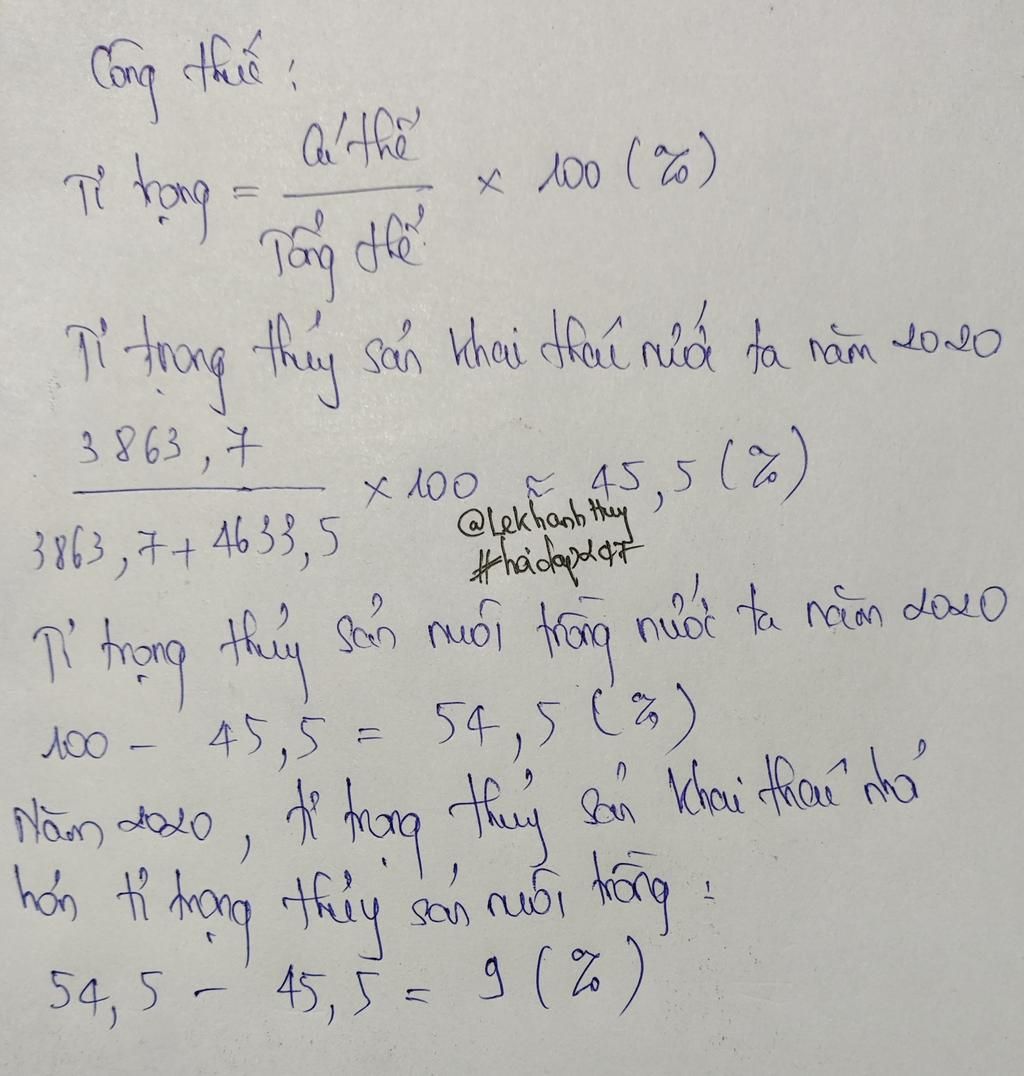 Công thức:
Tỉ trọng = Cá thể / Tổng thể × 100 (%)
Tỉ trọng thủy sản khai thác nước ta năm 2020
3863,7 / 3863,7 + 4633,5 × 100 ≈ 45,5 (%)
@Lekhanhthuy
#hoidap247
Tỉ trọng thủy sản nuôi trồng nước ta năm 2020
100 - 45,5 = 54,5 (%)
Năm 2020, tỉ trọng thủy sản khai thác nhỏ
hơn tỉ trọng thủy sản nuôi trồng:
54,5 - 45,5 = 9 (%)